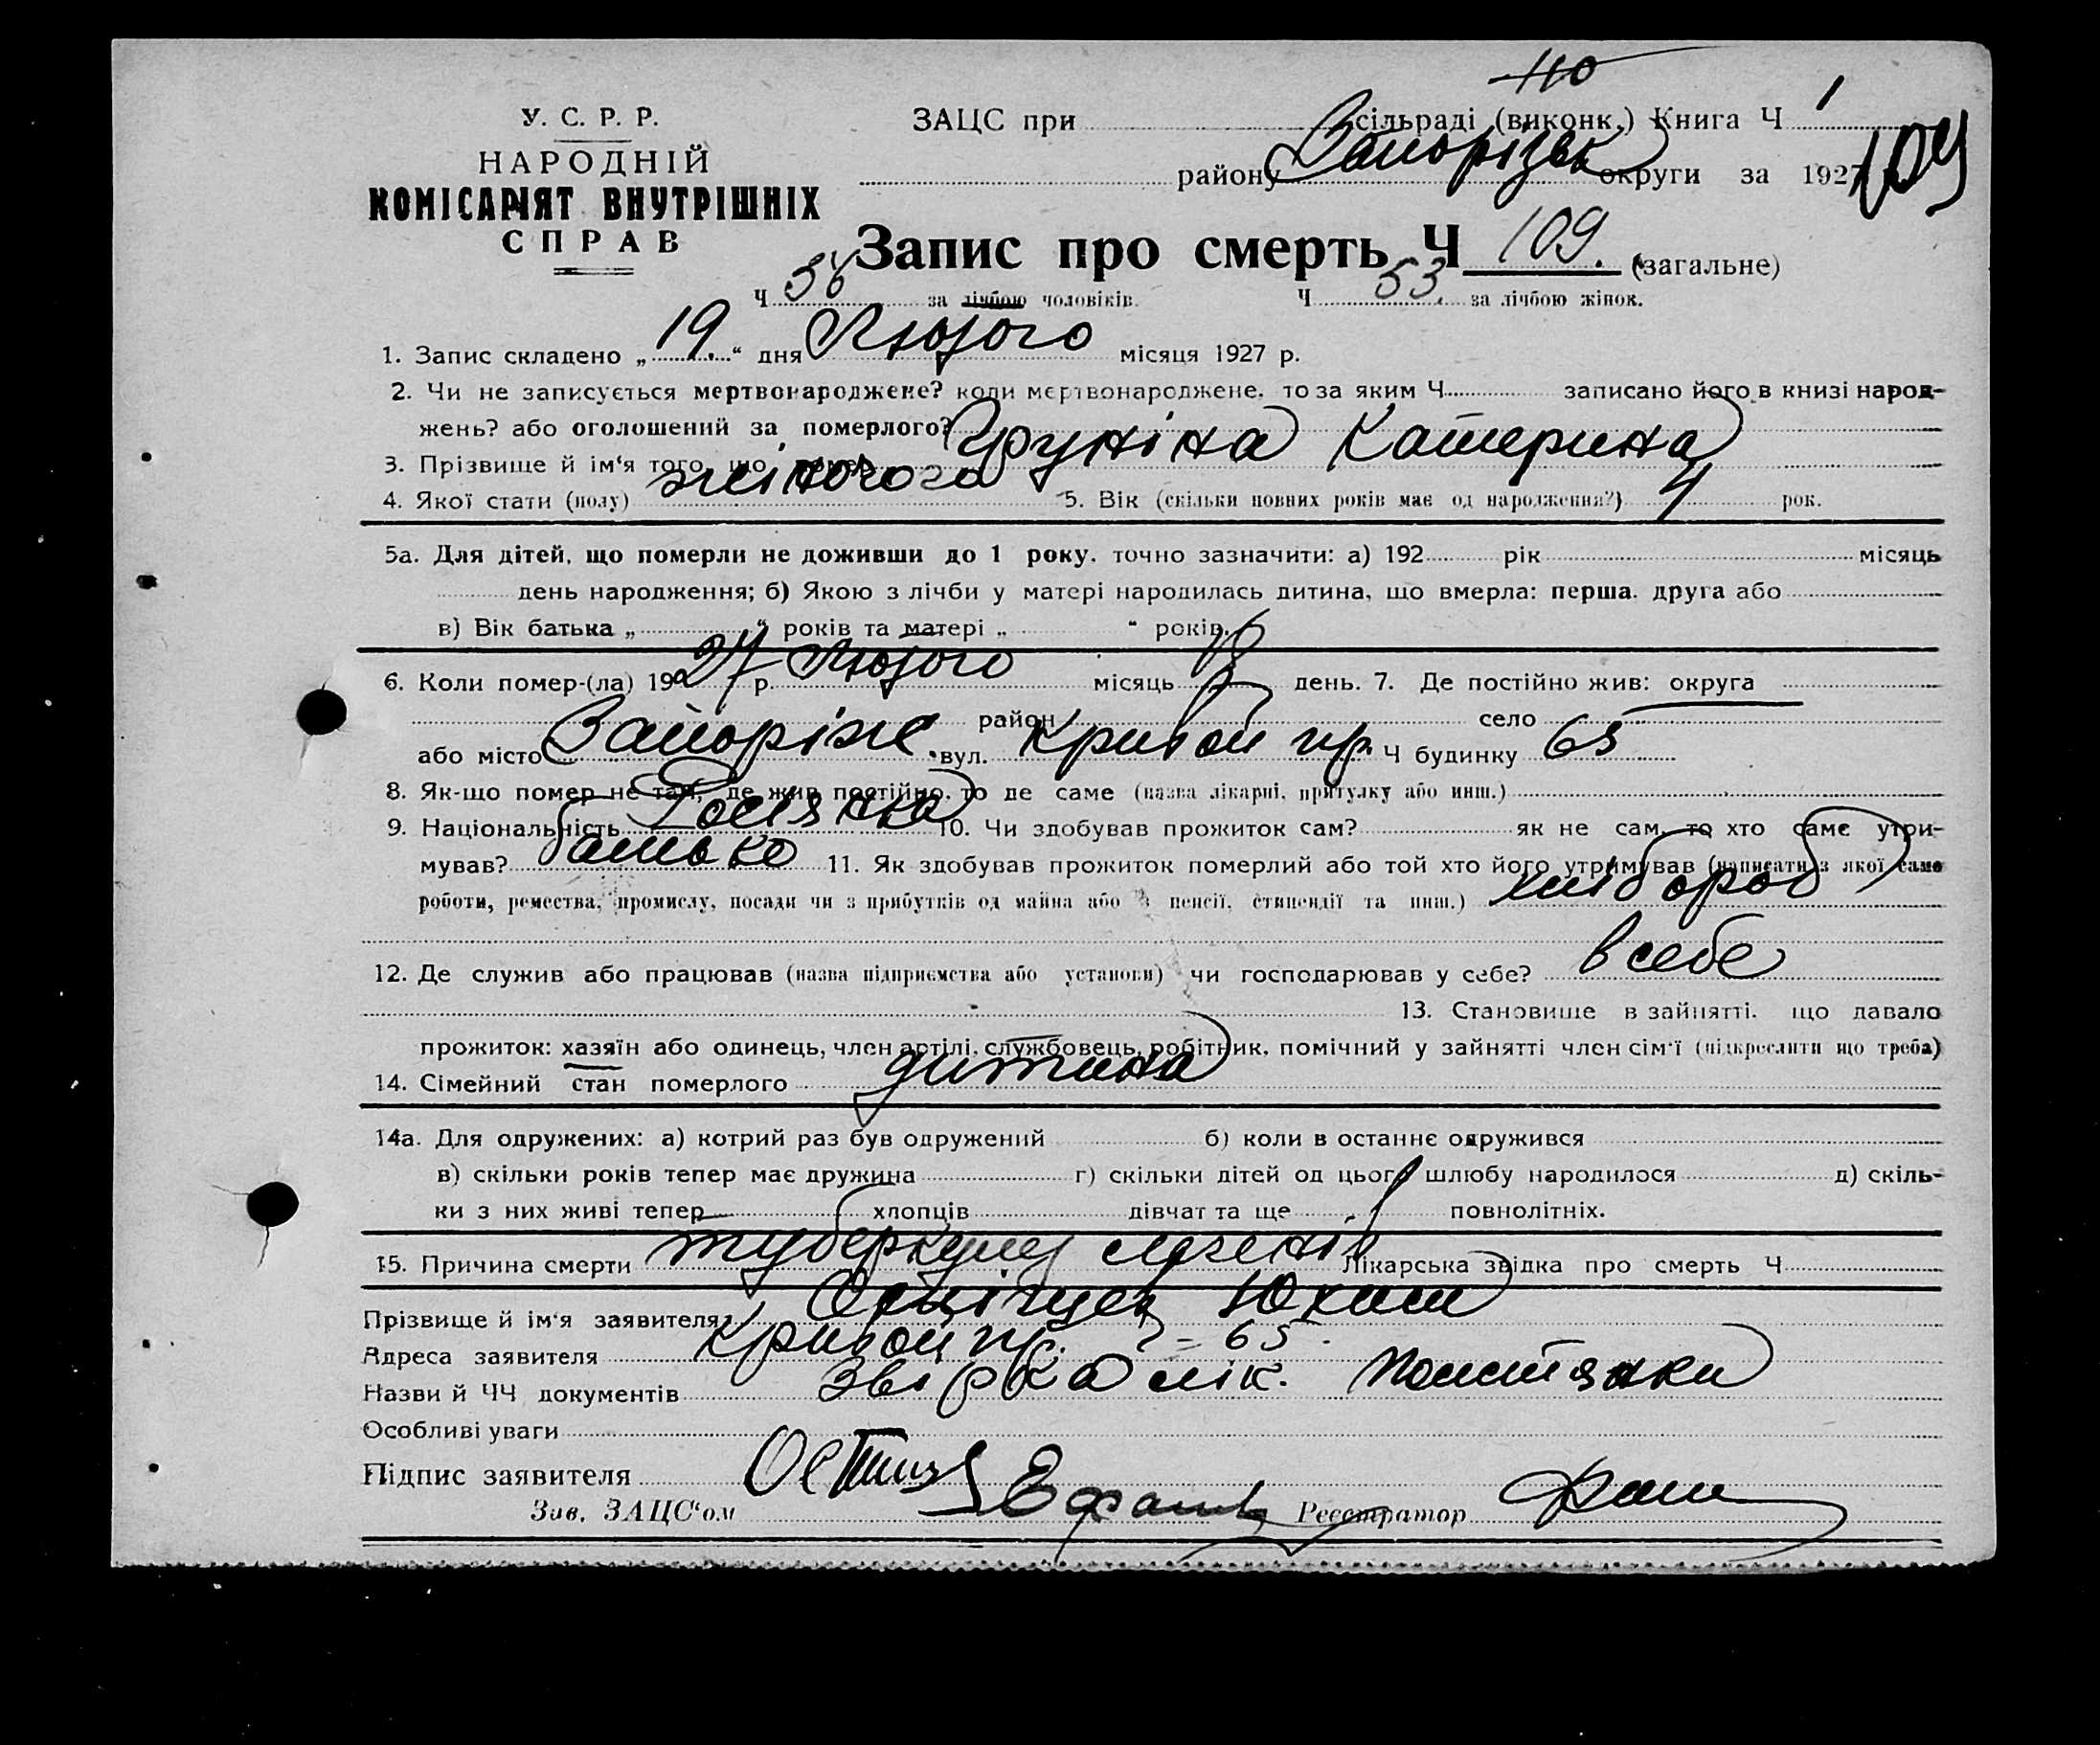 110
У. С. Р. Р.
ЗАЦС при сільраді (виконк.) Книга Ч 1
НАРОДНІЙ
району Запорізьк округи за 1927 109
КОМІСАРІЯТ ВНУТРІШНІХ
СПРАВ
Запис про смерть Ч 109. (загальне)
Ч 56 за лічбою чоловіків. Ч 53. за лічбою жінок.
1. Запис складено „19.“ дня Лютого місяця 1927 р.
2. Чи не записується мертвонароджене? коли мертвонароджене, то за яким Ч записано його в книзі народ-
жень? або оголошений за померлого?
3. Прізвище й ім'я того, що помер Груніна Катерина
4. Якої стати (полу) жіночого 5. Вік (скільки повних років має од народження?) 4 рок.
5а. Для дітей, що померли не доживши до 1 року, точно зазначити: а) 192 рік місяць
день народження; б) Якою з лічби у матері народилась дитина, що вмерла: перша, друга або
в) Вік батька „ “ років та матері „ “ років.
6. Коли помер-(ла) 1927 р. Лютого місяць 18 день. 7. Де постійно жив: округа
район село
або місто Запоріж. вул. Кривой пр. Ч будинку 65
8. Як-що помер не там, де жив постійно, то де саме (назва лікарні, притулку або инш.)
9. Національність Росіянка 10. Чи здобував прожиток сам? як не сам, то хто саме утри-
мував? батько 11. Як здобував прожиток померлий або той хто його утримував (написати з якої саме
роботи, ремества, промислу, посади чи з прибутків од майна або з пенсії, стипендії та инш.) хлібороб
12. Де служив або працював (назва підприємства або установи) чи господарював у себе? в себе
13. Становище в зайнятті, що давало
прожиток: хазяїн або одинець, член артілі, службовець, робітник, помічний у зайнятті член сім'ї (підкреслити що треба)
14. Сімейний стан померлого дитина
14а. Для одружених: а) котрий раз був одружений б) коли в останнє одружився
в) скільки років тепер має дружина г) скільки дітей од цього шлюбу народилося д) скіль-
ки з них живі тепер хлопців дівчат та ще повнолітніх.
15. Причина смерти туберкулез легенів Лікарська звідка про смерть Ч
Прізвище й ім'я заявителя Юхим
Адреса заявителя Кривой пр. 65.
Назви й ЧЧ документів лік.
Особливі уваги
Підпис заявителя
Зав. ЗАЦС'ом Реєстратор